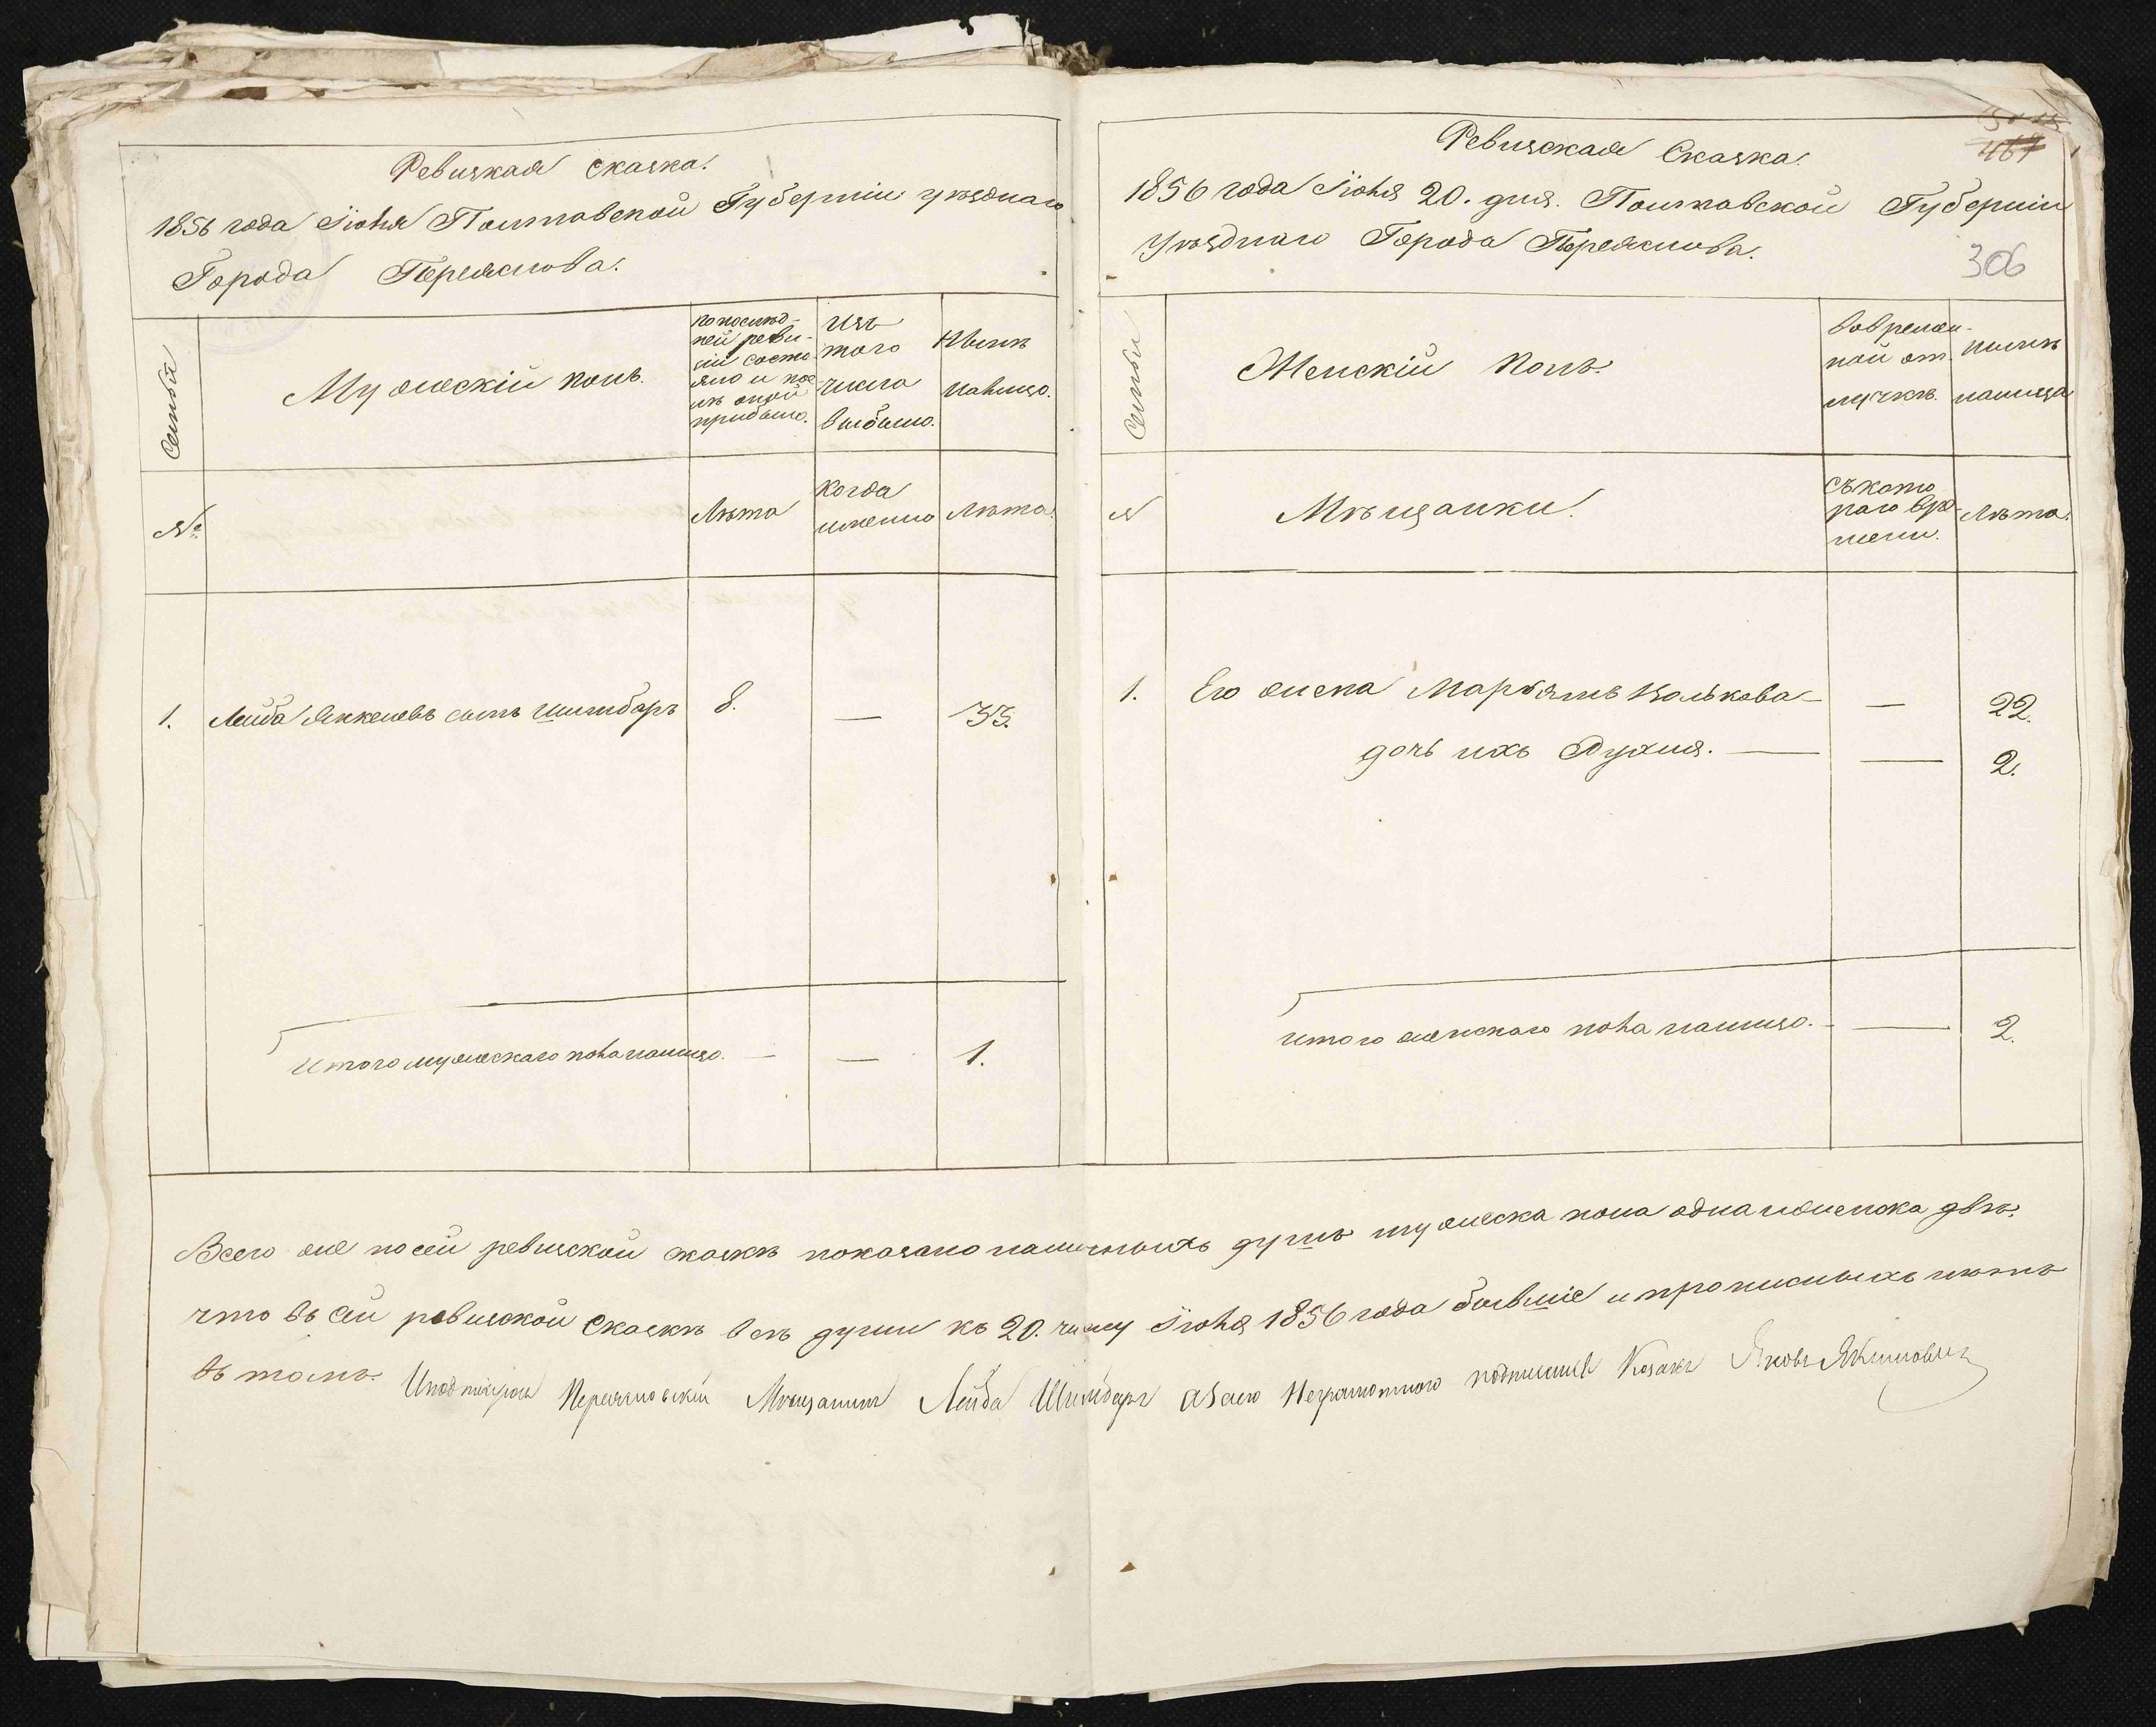 Ревизкая сказка.
1856 года Iюня Полтавской Губернiи уѣзднаго
Города Переяслова.
Семьи
Мужескiй полъ.
по послѣд-
ней реви-
зiи состо-
яло и пос-
лѣ оной
прибыло.
Изъ
того
числа
выбыло.
Нынѣ
налицо.
№
Лѣта
Когда
именно
Лѣта.
1. Лейба Янкелевъ сынъ Шимбаръ 8. — 33.
Итого мужескаго пола налицо. — — 1.
Ревизская Сказка.
1856 года Iюня 20. дня. Полтавской Губернiи
Уѣзднаго Города Переяслова.
467
306
Семьи
Женскiй Полъ.
Во времен-
ной от-
лучкѣ.
нынѣ
налицо
№
Мѣщанки.
Съ кото
раго вре-
мени.
Лѣта.
1. Его жена Марьямъ Волькова — — 22.
дочь ихъ Рухля. — — 2.
Итого женскаго пола налицо. — — 2.
Всего же по сей ревизской сказкѣ показано наличныхъ душъ мужеска пола одна и женска двѣ.
что въ сей ревизской Сказкѣ всѣ души къ 20. числу Iюня 1856 года бывшiе и прописныхъ нѣтъ
въ томъ. Переяславскiй Мѣщанинъ Лейба Шимбаръ а за его Неграмотного подписался Козакъ Яковъ Якимовичъ